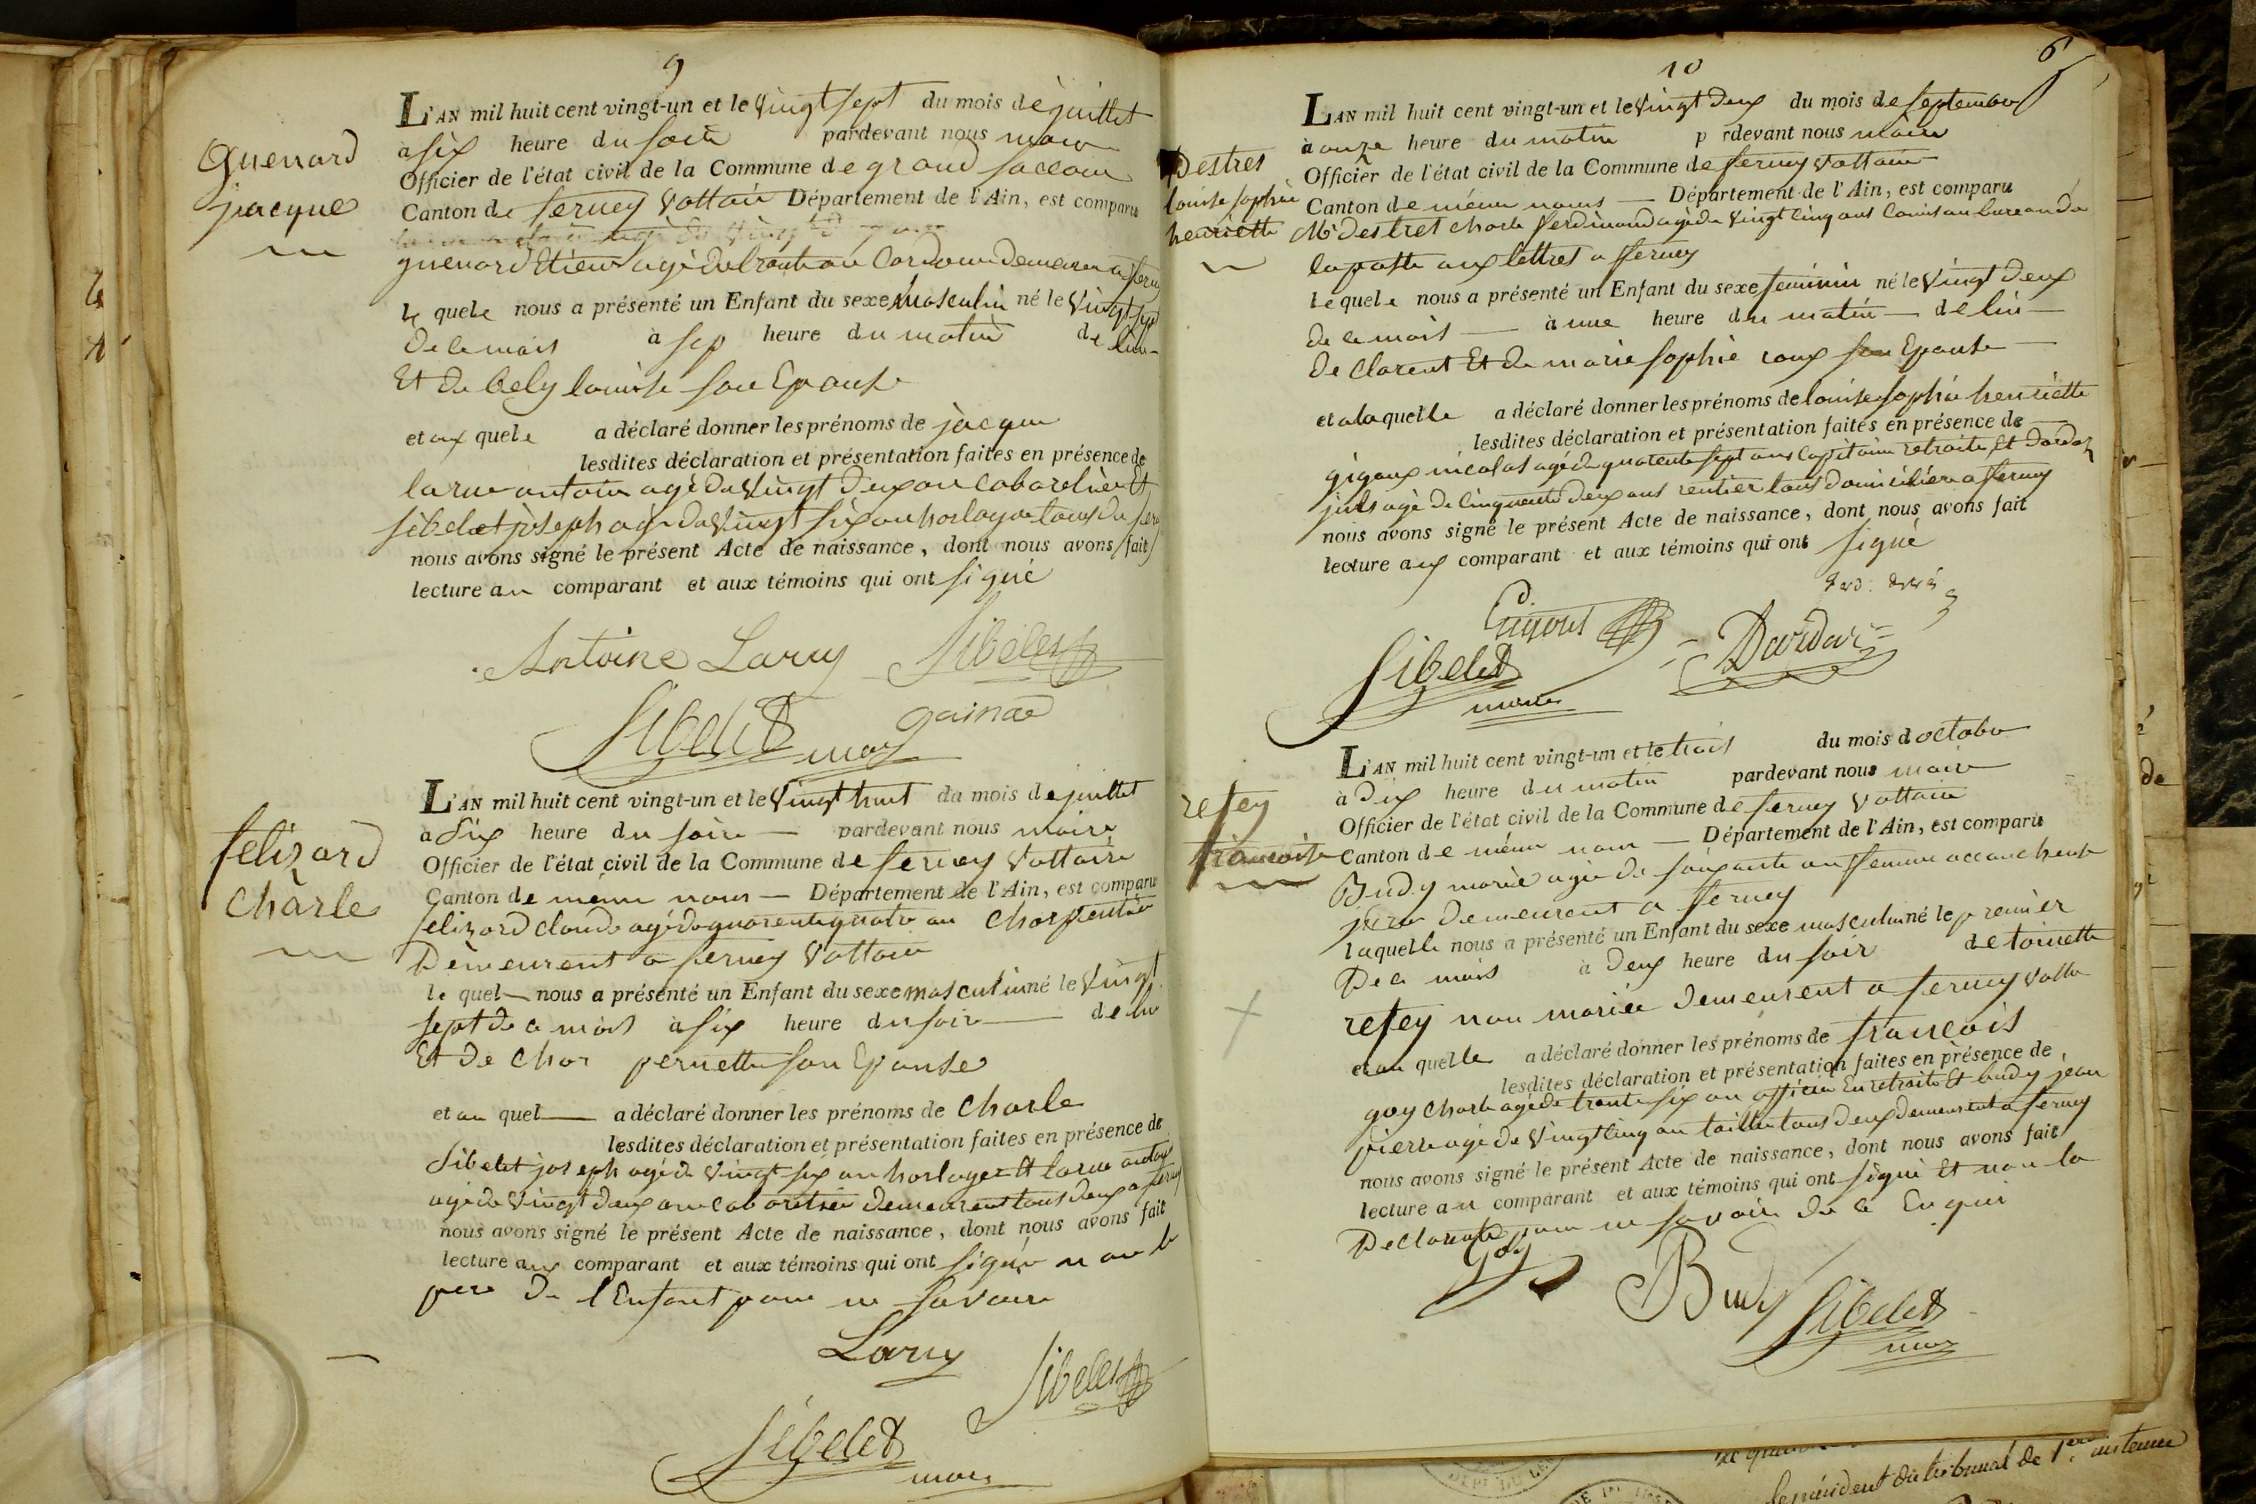 9
Guenard
jacque
L'AN mil huit cent vingt-un et le Vingt sept du mois de juillet
a six heure du soir pardevant nous maire
Officier de l'état civil de la Commune de grand saccon
Canton de ferney Voltair Département de l'Ain, est comparu
guenard Etien agé de trente an Cordonie demeuren a
le quele nous a présenté un Enfant du sexe Masculin né le Vingt sept
de ce mois à sep heure du matin de lui
Et de Bely louise son Epouse
et ux quele a déclaré donner les prénoms de jacque
lesdites déclaration et présentation faites en présence de
larue antoin agé de Vingt deux an Cabaretier Et
sibelet joseph agé de Vingt six an horloger tous de
nous avons signé le présent Acte de naissance, dont nous avons fait
lecture au comparant et aux témoins qui ont signé
Antoine Larry Sibelet
Sibelet maire gainar
felizard
Charle
L'AN mil huit cent vingt-un et le Vingt huit du mois de juillet
a Six heure du soir pardevant nous maire
Officier de l'état civil de la Commune de ferney Voltaire
Canton de même nom Département de l'Ain, est comparu
felizard claude agé de quarente quatre an Charpentier
Demeurent a ferney Voltair
le quel nous a présenté un Enfant du sexe masculin né le Vingt
sept de ce mois à six heure du soir de lui
Et de Chor pernette son Epouse
et au quel a déclaré donner les prénoms de Charle
lesdites déclaration et présentation faites en présence de
Sibelet joseph agé de Vingt six an horloger Et larue
agé de Vingt deux an cabaretier demeurent tous deux a ferney
nous avons signé le présent Acte de naissance, dont nous avons fait
lecture aux comparant et aux témoins qui ont signé non le
pere de l'Enfant pour ne savoire
Larry
Sibelet
Sibelet
maire
10
6
Destres
louise sophie
henriette
L'AN mil huit cent vingt-un et le Vingt deux du mois de septembre
à onze heure du matin p rdevant nous maire
Officier de l'état civil de la Commune de ferney Voltaire
Canton de même noms Département de l'Ain, est comparu
Mr destres charle ferdinand agé de Vingt cinq ans Comis au bureau de
la poste aux lettres a ferney
le quele nous a présenté un Enfant du sexe feminin né le Vingt deux
de ce mois à une heure du matin de lui
de clarent Et de marie sophie roux son Epouse
et a la quelle a déclaré donner les prénoms de louise sophie henriette
lesdites déclaration et présentation faites en présence de
gigoux nicolas agé de quarente sept ans Capitaine retraite Et dardar
juls agé de cinquente deux ans rentier tous domicilier a ferney
nous avons signé le présent Acte de naissance, dont nous avons fait
lecture aux comparant et aux témoins qui ont signé
Gigoux
Sibelet Dardar
maire
refey
françois
L'AN mil huit cent vingt-un et le trois du mois d octobre
à dix heure du matin pardevant nous maire
Officier de l'état civil de la Commune de ferney Voltaire
Canton de même nom Département de l'Ain, est comparu
Budy marie agée de soixante an femme accoucheuse
juré demeurent a ferney
laquelle nous a présenté un Enfant du sexe masculin né le premier
De ce mois à deux heure du soir de toinette
refey non mariée demeurent a ferney Volta
et au quelle a déclaré donner les prénoms de françois
lesdites déclaration et présentation faites en présence de
goy charle agé de trente six an officier En retraite Et budy jean
pierre agé de Vingt cinq an tailleur tous deux demeurent a ferney
nous avons signé le présent Acte de naissance, dont nous avons fait
lecture au comparant et aux témoins qui ont signé Et non la
Declarante pour ne savoir de ce Enqui
Goy
Budy Sibelet
maire
président du tribunal de 1ere instance